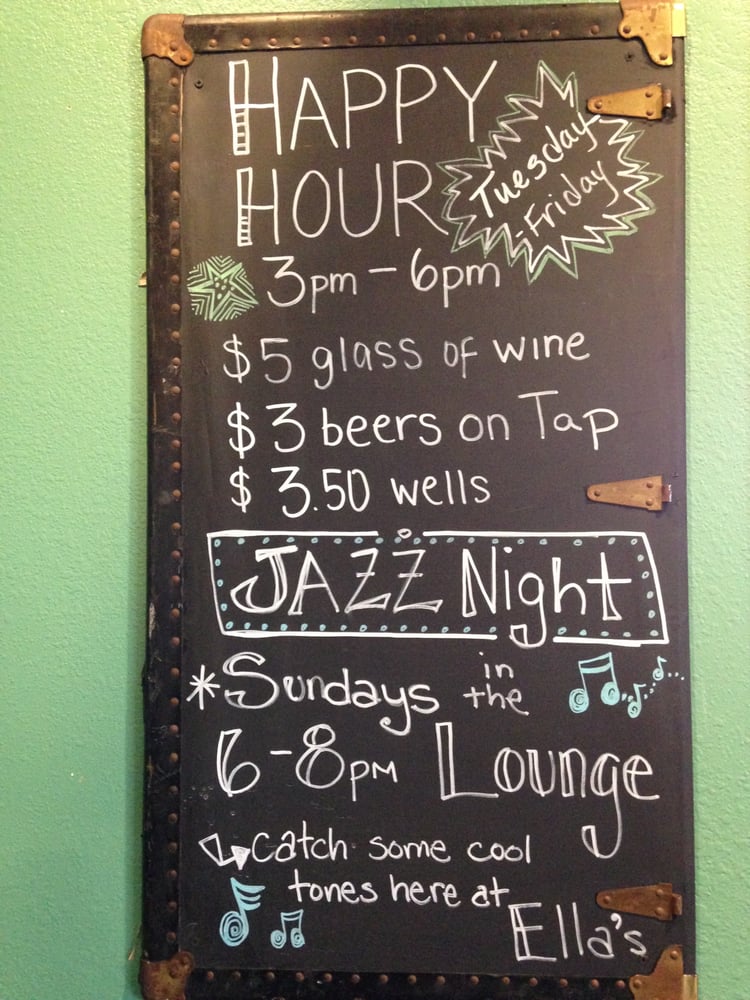 HAPPY
HOUR
Tuesday-
-Friday
3pm - 6pm
$5 glass of wine
$3 beers on Tap
$3.50 wells
JAZZ Night
*Sundays in the
6-8pm Lounge
catch some cool
tones here at
Ella's